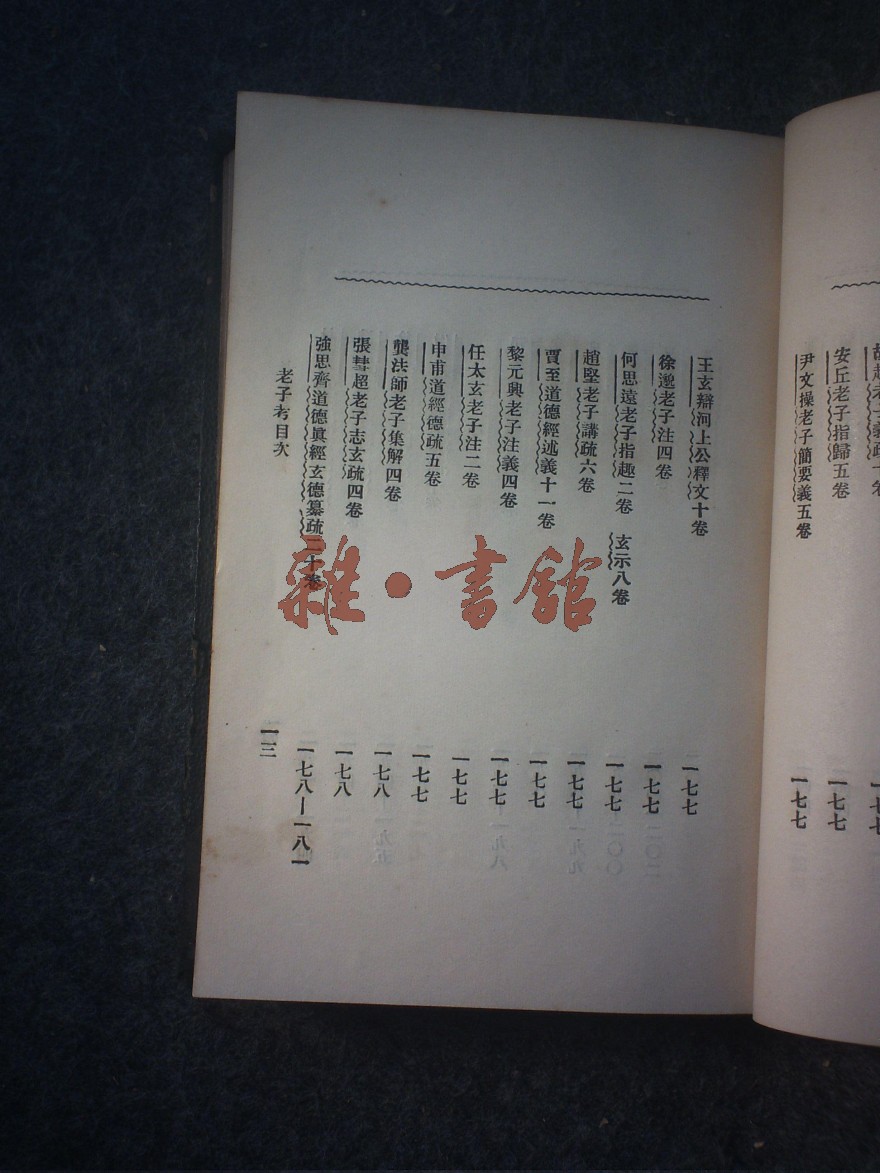 安丘老子指歸五卷 一七七
尹文操老子簡要義五卷 一七七
王玄辯河上公釋文十卷 一七七
徐邈老子注四卷 一七七
何思遠老子指趣二卷 玄示八卷 一七七
趙堅老子講疏六卷 一七七
賈至道德經述義十一卷 一七七
黎元興老子注義四卷 一七七
任太玄老子注二卷 一七七
申甫道經德疏五卷 一七七
龔法師老子集解四卷 一七八
張彗超老子志玄疏四卷 一七八
強思齊道德眞經玄德纂疏二十卷 一七八—一八一
老子考目次 一三
雜·書館